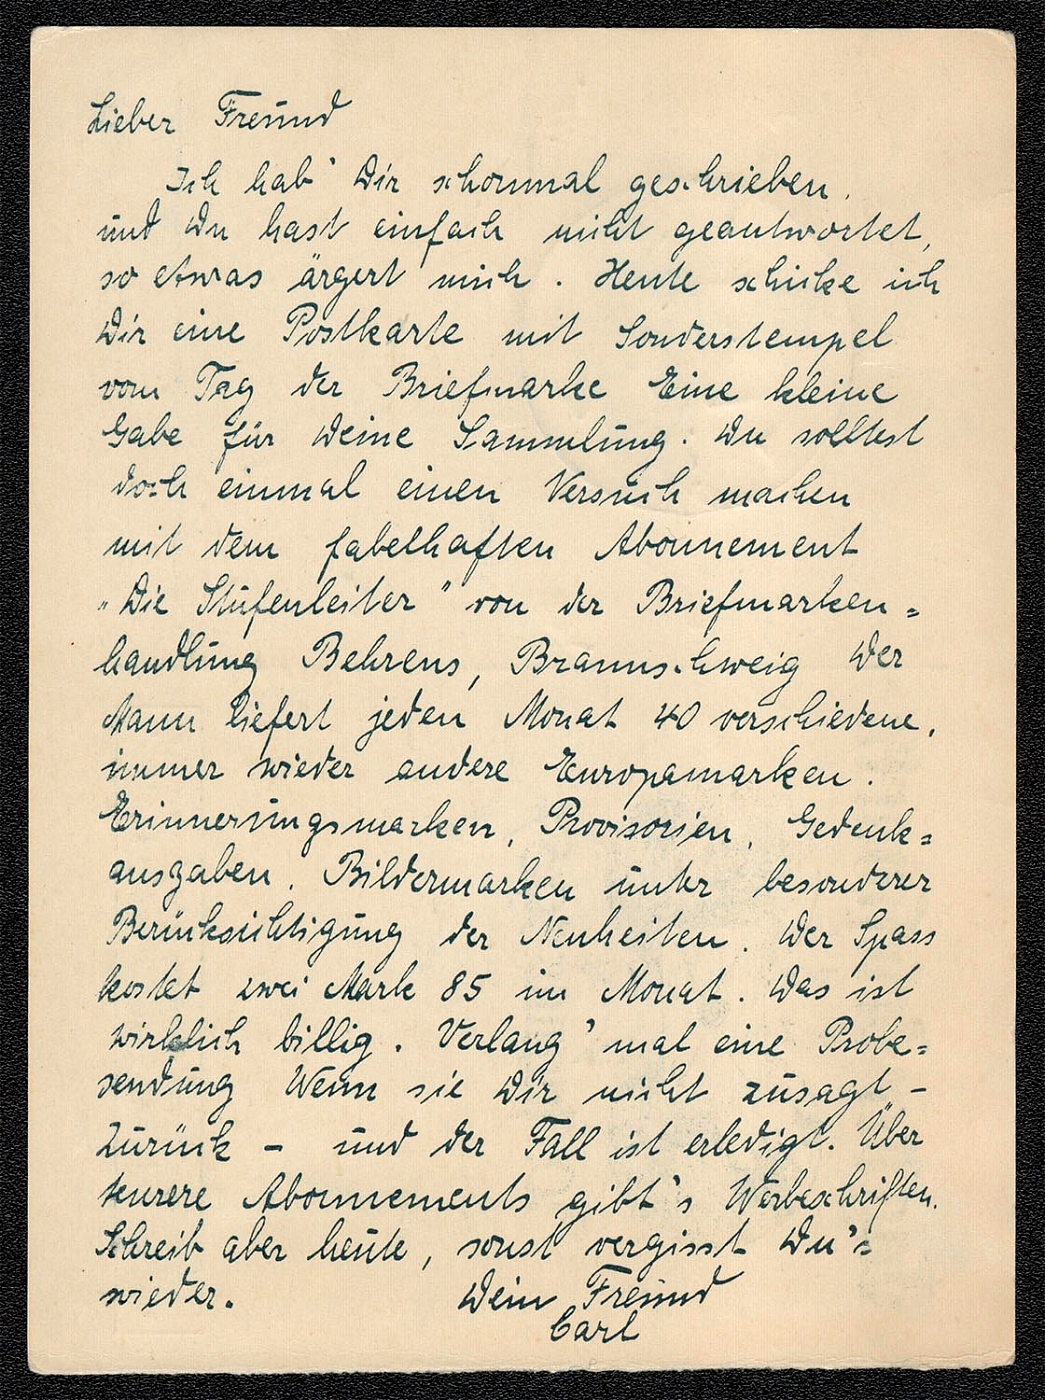 Lieber Freund
Ich hab' Dir schonmal geschrieben,
und Du hast einfach nicht geantwortet,
so etwas ärgert mich. Heute schicke ich
Dir eine Postkarte mit Sonderstempel
vom Tag der Briefmarke Eine kleine
Gabe für Deine Sammlung. Du solltest
doch einmal einen Versuch machen
mit dem fabelhaften Abonnement
"Die Stufenleiter" von der Briefmarken=
handlung Behrens, Braunschweig Der
Mann liefert jeden Monat 40 verschiedene,
immer wieder andere Europamarken.
Erinnerungsmarken, Provisorien, Gedenk=
ausgaben, Bildermarken unter besonderer
Berücksichtigung der Neuheiten. Der Spass
kostet zwei Mark 85 im Monat. Das ist
wirklich billig. Verlang' mal eine Probe=
sendung Wenn sie Dir nicht zusagt –
zurück – und der Fall ist erledigt. Über
teurere Abonnements gibt's Werbeschriften.
Schreib aber heute, sonst vergisst Du's
wieder. Dein Freund
Carl